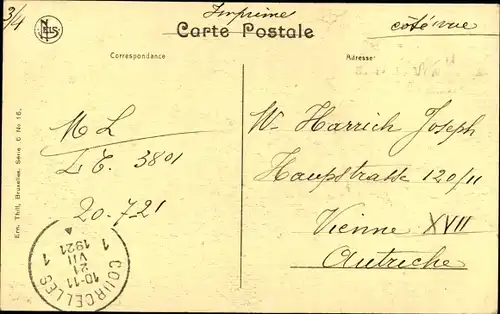 3/4
Imprimé
côté vue
NELS
Carte Postale
Correspondance
Adresse
M L
L. C. 3801
20-7-21
W. Harrich Joseph
Haupstrasse 120/11
Vienne XVII
Autriche
Ern. Thill, Bruxelles, Série 6 No 16.
COURCELLES
1 1
10-11
21
VII
1921